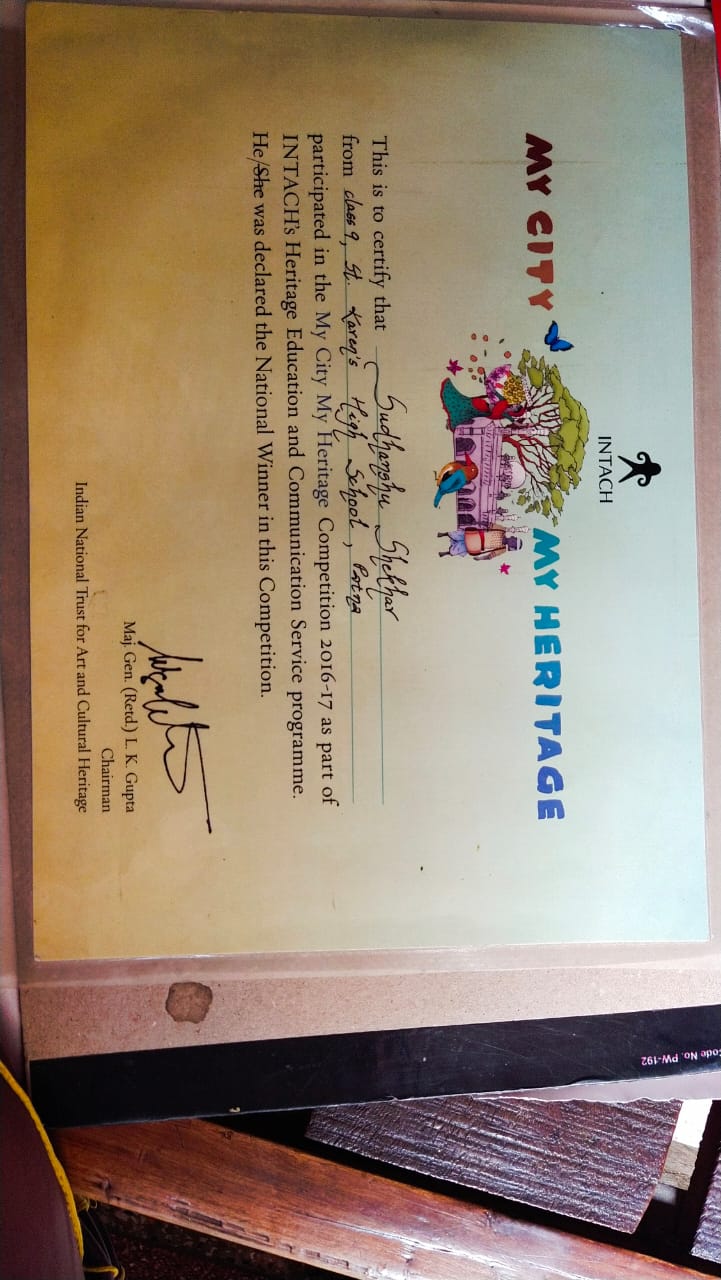 INTACH
MY CITY MY HERITAGE
This is to certify that Sudhanshu Shekhar
from class 9, St. Karen's High School, Patna
participated in the My City My Heritage Competition 2016-17 as part of
INTACH's Heritage Education and Communication Service programme.
He/She was declared the National Winner in this Competition.
Maj. Gen. (Retd.) L. K. Gupta
Chairman
Indian National Trust for Art and Cultural Heritage
Code No. PW-192